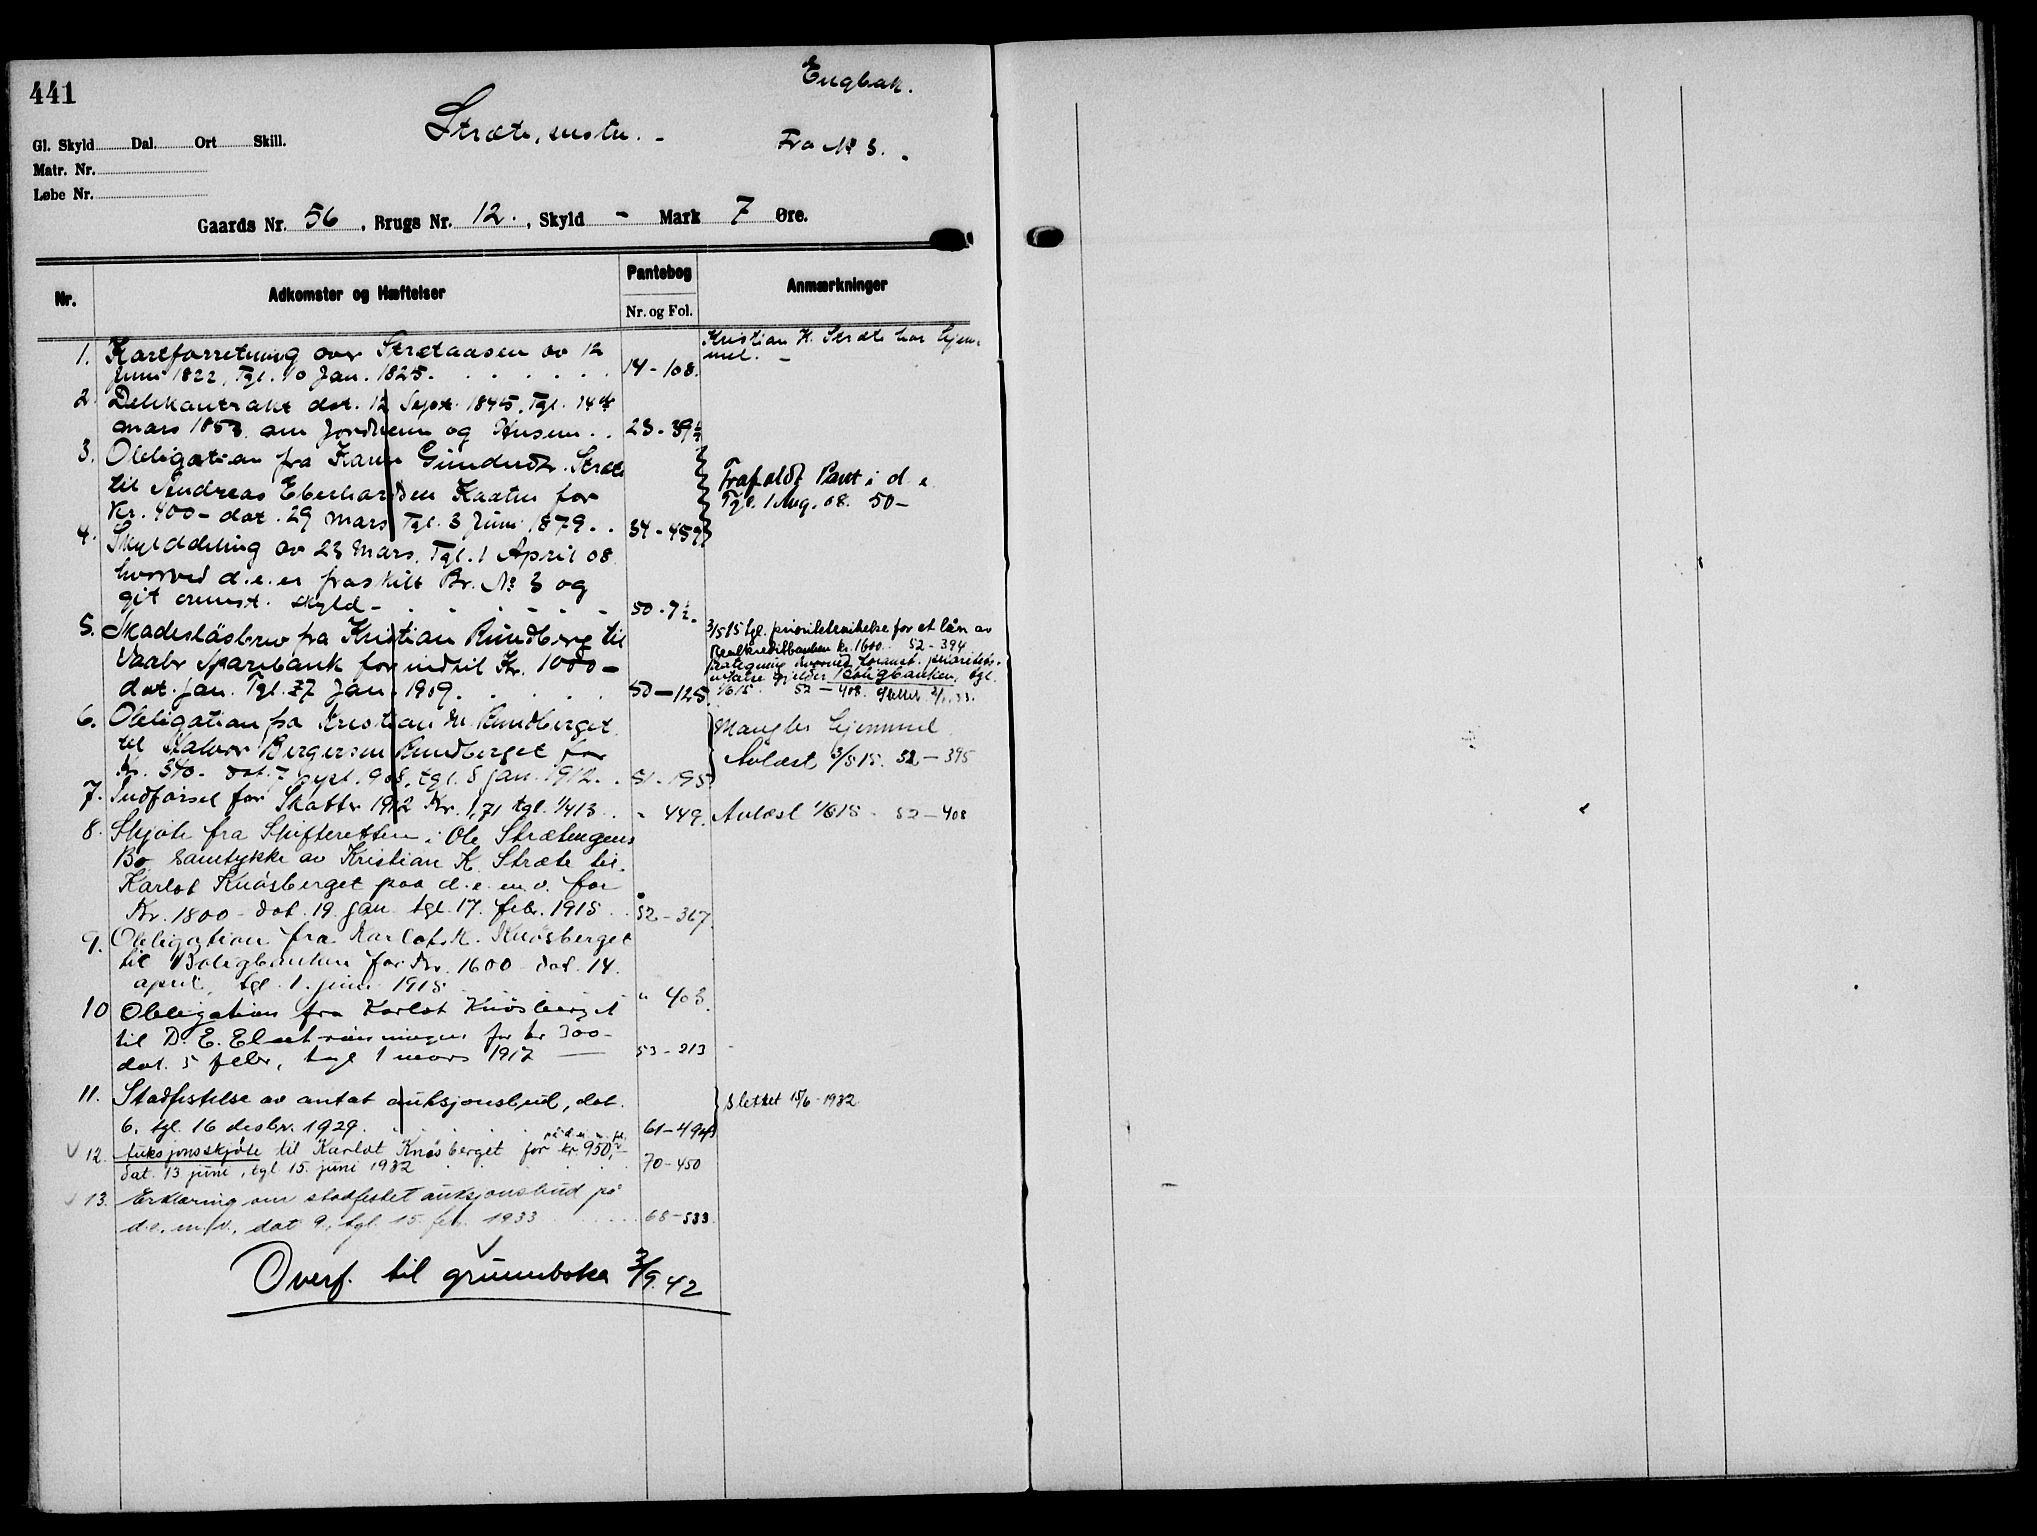 441
Engbak.
Stræte, vestre. -
Fra Nº 3.
Gl. Skyld Dal. Ort Skill.
Matr. Nr.
Løbe Nr.
Gaards Nr. 56, Brugs Nr. 12., Skyld - Mark 7 Øre.
Nr. Adkomster og Hæftelser Pantebog Anmærkninger
Nr. og Fol.
1. Kartforretning over Strætaasen av 12
juni 1822, Tgl. 10 Jan. 1825. 14-108.
Kristian K. Stræte har hjem-
mel. -
2. Delekontrakt dat. 12 Sept. 1845, Tgl. 14de
mars 1853 om Jordveien og Husene . . 23-39½
3. Obligation fra Karen Gundersdr. Stræte
til Andreas Eberhardsen Kaaten for
Kr. 400- dat. 29 Mars Tgl. 3 Juni 1879. . 34-459
Frafaldt Pant i d. e.
Tgl. 1 Aug. 08. 50-
4. Skylddeling av 23 Mars, Tgl. 1 April 08
hvorved d. e. er fraskilt Br. Nº 3 og
git ovenst. skyld - 50-7½.
5. Skadesløsbrev fra Kristian Rundberg til
Vaaler Sparebank for indtil Kr. 1000-
dat. jan. Tgl. 27 Jan. 1909. 50-125.
3/5 15 tgl. prioritetsvikelse for et lån av
Realkreditbanken kr. 1600. 52-394
Paategning hvorved foranst. prioritets-
vikelse gjelder Boligbanken. tgl.
1/6 15. 52-408. Slettet
6. Obligation fra Kristian M. Rundberget
til Halvor Bergersen Rundberget for
Kr. 340- dat. 7 sept. 908, tgl. 8 jan. 1912. . 51-195
Mangler hjemmel
Avlæst 3/5 15. 52-395
7. Indførsel for Skatter 1912 Kr. 1,71 tgl. 1/4 13 . " 449. Avlæst 1/6 15 - 52-408
8. Skjøte fra Skifteretten i Ole Strætengens
Bo samtykke av Kristian K. Stræte til
Karlot Knøsberget paa d. e. m. v. for
Kr. 1800- dat. 19 jan. tgl. 17. febr. 1915 . . 52-367
9. Obligation fra Karlot K. Knøsberget
til Boligbanken for Kr. 1600- dat. 14.
april, tgl. 1. juni 1915 " 403.
10 Obligation fra Karlot Knøsberget
til D. E. for kr 300-
dat. 5 febr, tgl 1 mars 1917 53-213
11. Stadfestelse av antat auksjonsbud, dat.
6. tgl. 16 desbr. 1929. 61-494
Slettet 15/6-1932
12. Auksjonsskjøte til Karlot Knøsberget på d. e. m. fl. for kr. 950,-
dat. 13 juni, tgl 15. juni 1932 70-450
13. Erklæring om stadfestet auksjonsbud på
d.e. m.v., dat 9., tgl. 15. feb. 1933 . . . . . 68-533.
Overf. til grunnboka 3/9.42